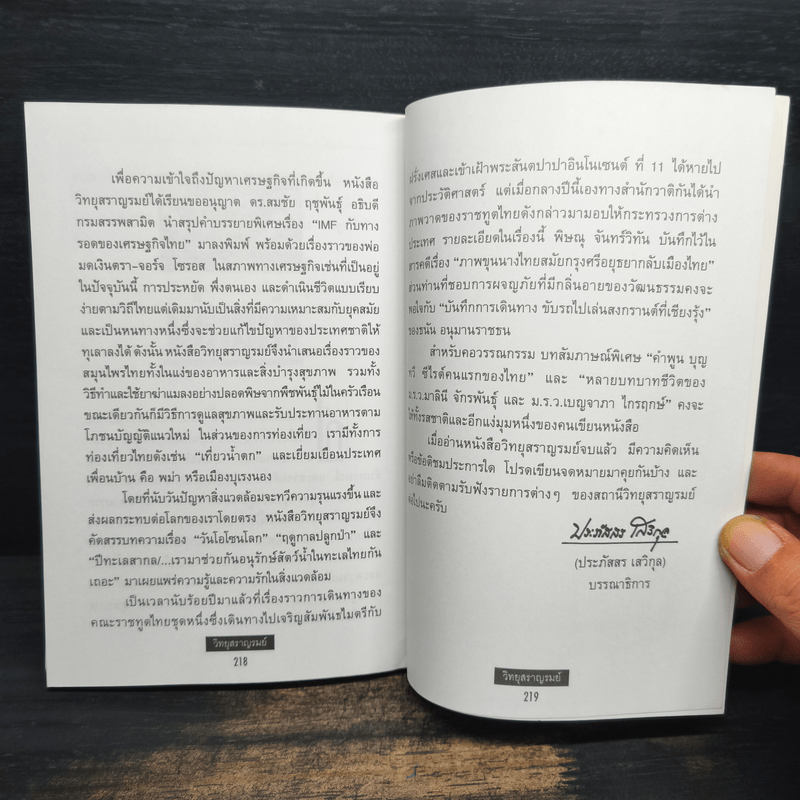 เพื่อความเข้าใจถึงปัญหาเศรษฐกิจที่เกิดขึ้น หนังสือ
วิทยุสราญรมย์ได้เรียนขออนุญาต ดร.สมชัย ฤชุพันธุ์ อธิบดี
กรมสรรพสามิต นำสรุปคำบรรยายพิเศษเรื่อง “IMF กับทาง
รอดของเศรษฐกิจไทย” มาลงพิมพ์ พร้อมด้วยเรื่องราวของพ่อ
มดเงินตรา-จอร์จ โซรอส ในสภาพทางเศรษฐกิจเช่นที่เป็นอยู่
ในปัจจุบันนี้ การประหยัด พึ่งตนเอง และดำเนินชีวิตแบบเรียบ
ง่ายตามวิถีไทยแต่เดิมมานับเป็นสิ่งที่มีความเหมาะสมกับยุคสมัย
และเป็นหนทางหนึ่งซึ่งจะช่วยแก้ไขปัญหาของประเทศชาติให้
ทุเลาลงได้ ดังนั้น หนังสือวิทยุสราญรมย์จึงนำเสนอเรื่องราวของ
สมุนไพรไทยทั้งในแง่ของอาหารและสิ่งบำรุงสุขภาพ รวมทั้ง
วิธีทำและใช้ยาฆ่าแมลงอย่างปลอดพิษจากพืชพันธุ์ไม้ในครัวเรือน
ขณะเดียวกันก็มีวิธีการดูแลสุขภาพและรับประทานอาหารตาม
โภชนบัญญัติแนวใหม่ ในส่วนของการท่องเที่ยว เรามีทั้งการ
ท่องเที่ยวไทยดังเช่น “เที่ยวน้ำตก” และเยี่ยมเยือนประเทศ
เพื่อนบ้าน คือ พม่า หรือเมืองบุเรงนอง
โดยที่นับวันปัญหาสิ่งแวดล้อมจะทวีความรุนแรงขึ้น และ
ส่งผลกระทบต่อโลกของเราโดยตรง หนังสือวิทยุสราญรมย์จึง
คัดสรรบทความเรื่อง “วันโอโซนโลก” “ฤดูกาลปลูกป่า” และ
“ปีทะเลสากล/...เรามาช่วยกันอนุรักษ์สัตว์น้ำในทะเลไทยกัน
เถอะ” มาเผยแพร่ความรู้และความรักในสิ่งแวดล้อม
เป็นเวลานับร้อยปีมาแล้วที่เรื่องราวการเดินทางของ
คณะราชทูตไทยชุดหนึ่งซึ่งเดินทางไปเจริญสัมพันธไมตรีกับ
วิทยุสราญรมย์
218
ฝรั่งเศสและเข้าเฝ้าพระสันตปาปาอินโนเซนต์ ที่ 11 ได้หายไป
จากประวัติศาสตร์ แต่เมื่อกลางปีนี้เองทางสำนักวาติกันได้นำ
ภาพวาดของราชทูตไทยดังกล่าวมามอบให้กระทรวงการต่าง
ประเทศ รายละเอียดในเรื่องนี้ พิษณุ จันทร์วิทัน บันทึกไว้ใน
สารคดีเรื่อง “ภาพขุนนางไทยสมัยกรุงศรีอยุธยากลับเมืองไทย”
ส่วนท่านที่ชอบการผจญภัยที่มีกลิ่นอายของวัฒนธรรมคงจะ
พอใจกับ “บันทึกการเดินทาง ขับรถไปเล่นสงกรานต์ที่เชียงรุ้ง”
ของธนัน อนุมานราชธน
สำหรับคอวรรณกรรม บทสัมภาษณ์พิเศษ “คำพูน บุญ
ทวี ซีไรต์คนแรกของไทย” และ “หลายบทบาทชีวิตของ
ม.ร.ว.มาลินี จักรพันธุ์ และ ม.ร.ว.เบญจาภา ไกรฤกษ์” คงจะ
ให้ทั้งรสชาติและอีกแง่มุมหนึ่งของคนเขียนหนังสือ
เมื่ออ่านหนังสือวิทยุสราญรมย์จบแล้ว มีความคิดเห็น
หรือข้อติชมประการใด โปรดเขียนจดหมายมาคุยกันบ้าง และ
อย่าลืมติดตามรับฟังรายการต่างๆ ของสถานีวิทยุสราญรมย์
ต่อไปนะครับ
ประภัสสร เสวิกุล
(ประภัสสร เสวิกุล)
บรรณาธิการ
วิทยุสราญรมย์
219